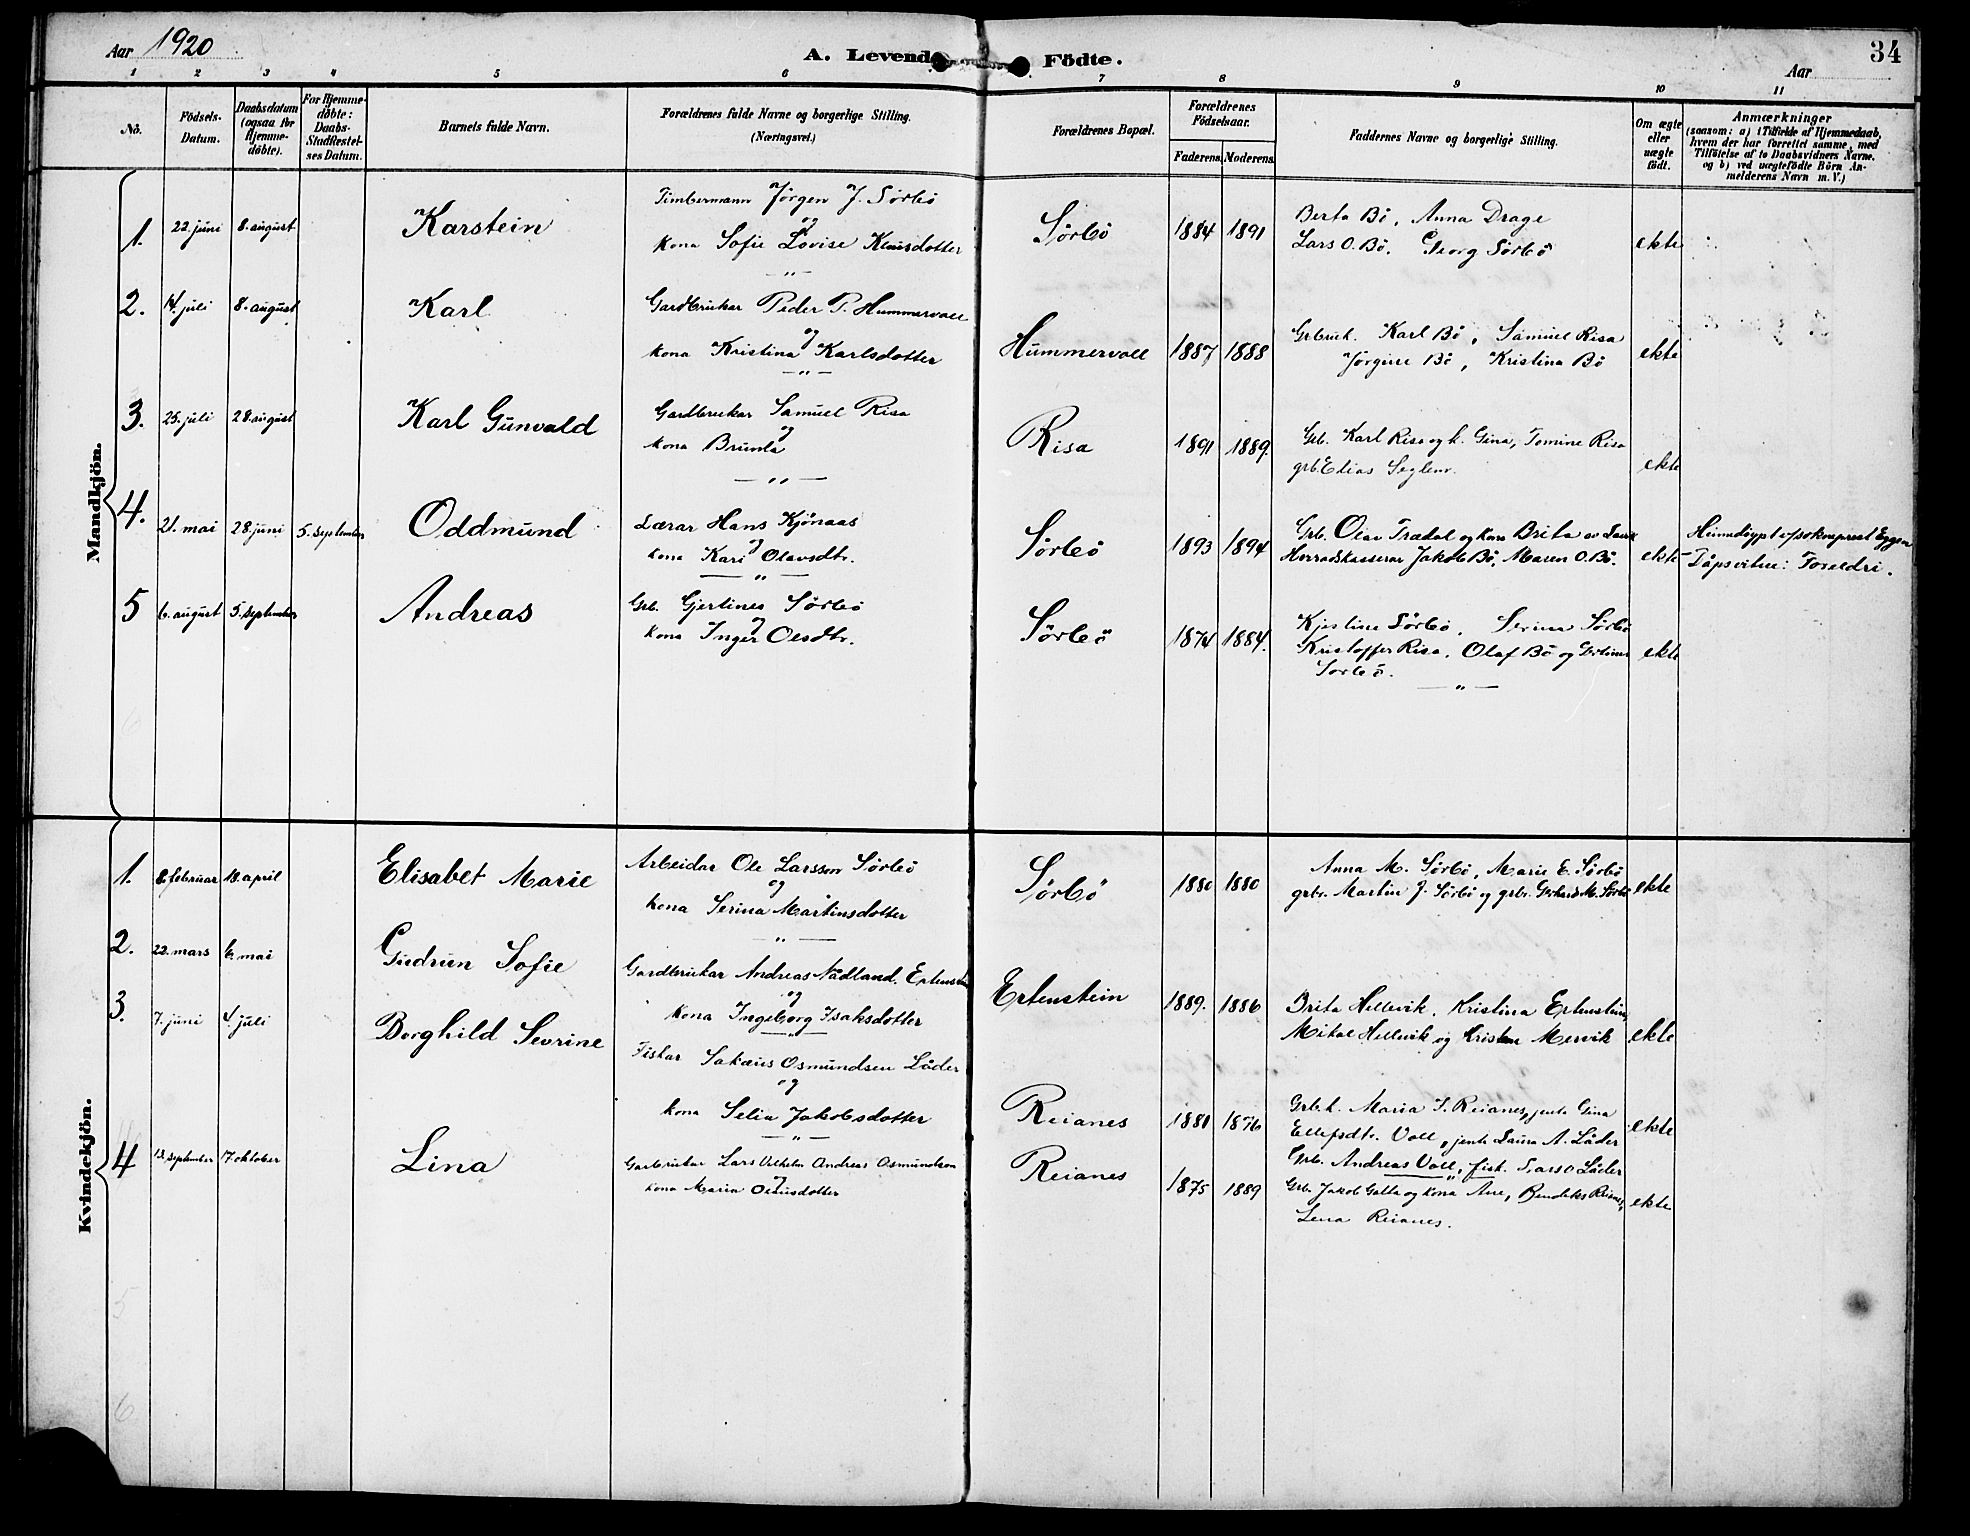 Aar 1920
A. Levende Födte.
34
Aar
1 2 3 4 5 6 7 8 9 10 11
No.
Födsels-Datum.
Daabsdatum (ogsaa for Hjemme-döbte).
For Hjemme-döbte: Daabs-Stadfæstel-ses Datum.
Barnets fulde Navn.
Forældrenes fulde Navne og borgerlige Stilling.
(Næringsvei.)
Forældrenes Bopæl.
Forældrenes Födselsaar.
Faderens. Moderens.
Faddernes Navne og borgerlige Stilling.
Om ægte eller uægte födt.
Anmærkninger
(saasom: a) i Tilfælde af Hjemmedaab,
hvem der har forrettet samme, med
Tilföielse af to Daabsvidners Navne.
og b) ved uægtefödte Börn An-
melderens Navn m. V.)
Mandkjön.
1. 22. juni 8. august Karstein
Timbermann Jørgen J. Sörbö
og
kona Sofie Lovise
Sörbö 1884 1891
Berta Bö, Anna Drage
Lars O. Bö. Georg Sörbö
ekte
2. 14. juli 8. august Karl
Gardbrukar Peder P. Hummervoll
og
kona Kristina Karlsdotter
Hummervoll 1887 1888
Grbruk. Karl Bö, Samuel Risa
Jörgine Bö, Kristina Bö
ekte
3. 25. juli 28. august Karl Gunvald
Gardbrukar Samuel Risa
og
kona Brunla
Risa 1891 1889.
Grb. Karl Risa og k. Gina, Tomine Risa
grb. Elias Seglem.
ekte
4. 21. mai 28. juni 5. september Oddmund
Lærar Hans Kjönaas
og
kona Kari Olavsdtr.
Sörbö 1893 1894
Grb. Olav Trædal og kona Brita av
Herradskasserar Jakob Bö, Maren O. Bö.
ekte
Heimedöypt v/sokneprest
Dåpsvitne: Foreldri.
5 6. august 5. september Andreas
Grb. Gjertines Sörbö
og
kona Inger Olesdtr.
Sörbö 1874 1884.
Kjestine Sörbö, Serina Sörbö
Kristoffer Risa, Olaf Bö og
Sörbö.
ekte
Kvindekjön.
1. 8. februar 18. april Elisabet Marie
Arbeidar Ole Larssen Sörbö
og
kona Serina Martinsdotter
Sörbö 1880 1880
Anna M. Sörbö, Marie E. Sörbö
grbr. Martin J. Sörbö og grbr. Gerhard M. Sörbö
ekte
2. 22. mars 6. mai Gudrun Sofie
Gardbrukar Andreas Nådland, Ertenstein
og
kona Ingeborg Isaksdotter
Ertenstein 1889. 1886
Brita Hellevik, Kristina Ertenstein,
Mikal Hellevik og Kristen Mervik
ekte
3. 7. juni 4. juli Borghild Sevrine
Fiskar Sakæus Osmundsen Låder
og
kona Selia Jakobsdotter
Reianes 1881 1876
Grb.k. Maria T. Reianes, jente Gina
Ellefsdtr. Voll, jente Laura A. Låder
Grb. Andreas Voll, fisk. Lars O Låder
ekte
4 13. september 17 oktober Lina
Gardbrukar Lars Vilhelm Andreas Osmundson
og
kona Maria
Reianes 1875 1889
Grb. Jakob Galta og kona Ane, Bendikts Reianes,
Lena Reianes.
ekte
5
6